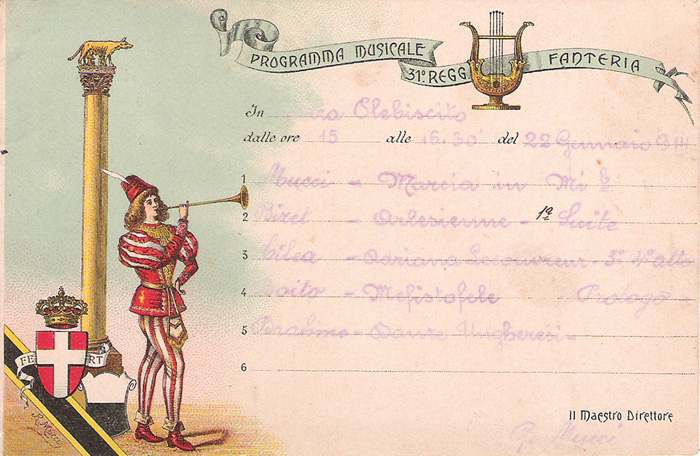 PROGRAMMA MUSICALE
31º REGG. FANTERIA
In Plebiscito
dalle ore 15 alle 16.30 del 22 Gennaio
1 Mucci - Marcia in Mi b
2 Bizet - Arlesienne - 1ª Suite
3 Cilea - Adriana Lecouvreur - 3º 4º atto
4 Boito - Mefistofele - Prologo
5 Brahms - Danze Ungheresi
6
FERT
Il Maestro Direttore
G. Mucci